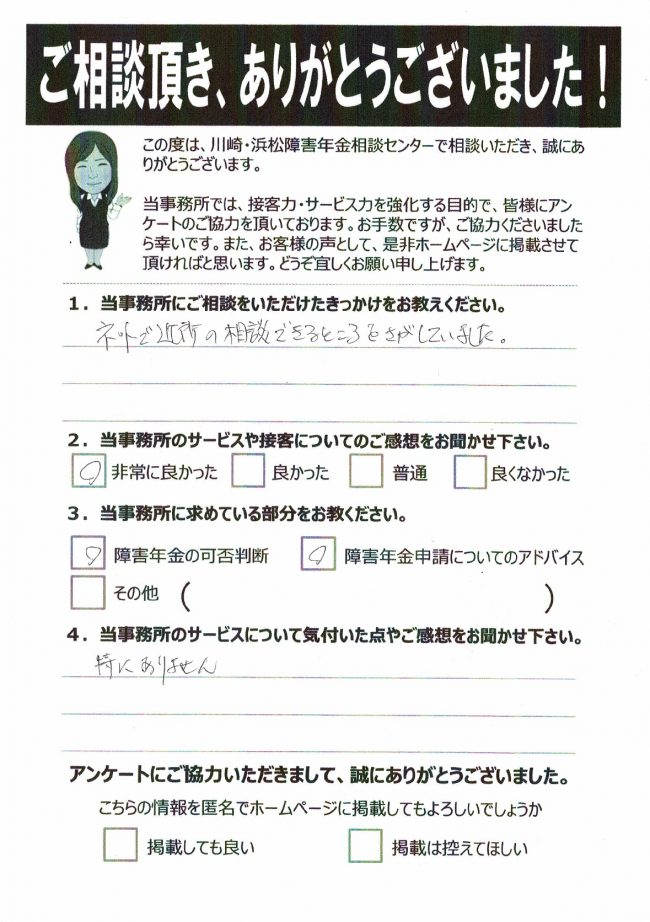 ご相談頂き、ありがとうございました！
この度は、川崎・浜松障害年金相談センターで相談いただき、誠にあ
りがとうございます。
当事務所では、接客力・サービス力を強化する目的で、皆様にアン
ケートのご協力を頂いております。お手数ですが、ご協力くださいました
ら幸いです。また、お客様の声として、是非ホームページに掲載させて
頂ければと思います。どうぞ宜しくお願い申し上げます。
１．当事務所にご相談をいただけたきっかけをお教えください。
ネットで近所の相談できるところをさがしていました。
２．当事務所のサービスや接客についてのご感想をお聞かせ下さい。
非常に良かった 良かった 普通 良くなかった
３．当事務所に求めている部分をお教ください。
障害年金の可否判断 障害年金申請についてのアドバイス
その他 （ ）
４．当事務所のサービスについて気付いた点やご感想をお聞かせ下さい。
特にありません
アンケートにご協力いただきまして、誠にありがとうございました。
こちらの情報を匿名でホームページに掲載してもよろしいでしょうか
掲載しても良い 掲載は控えてほしい